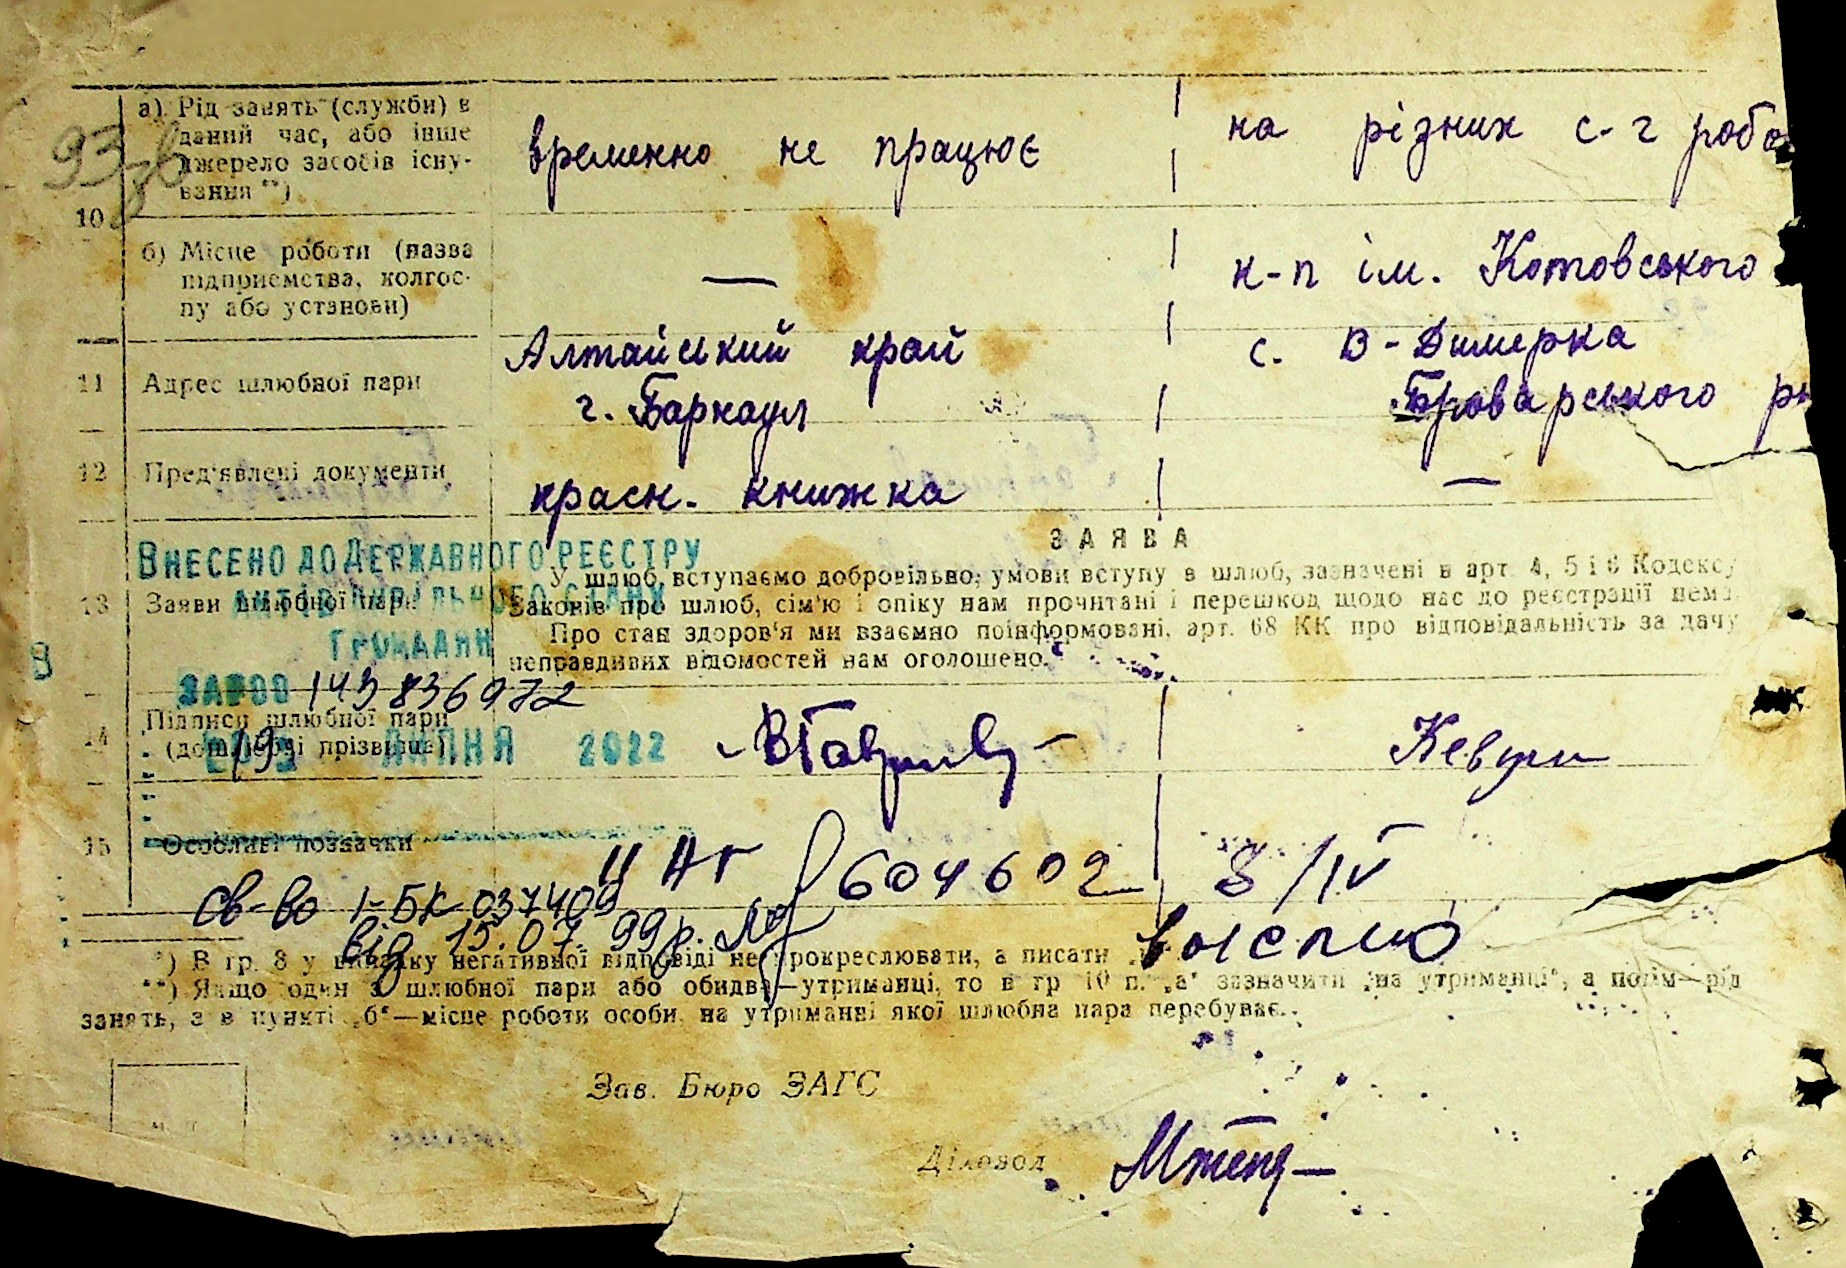 93
а) Рід занять (служби) в даний час, або інше джерело засобів існування **)
временно не працює
на різних с-г робо
10
б) Місце роботи (назва підприємства, колгоспу або установи)
—
к-п ім. Котовського
11 Адрес шлюбної пари
Алтайський край
г. Барнаул
с. В-Димерка
Броварського
12 Пред'явлені документи
красн. книжка
—
ЗАЯВА
13 Заяви шлюбної пари
У шлюб вступаємо добровільно, умови вступу в шлюб, зазначені в арт. 4, 5 і 6 Кодексу
Законів про шлюб, сім'ю і опіку нам прочитані і перешкод щодо нас до реєстрації нема.
Про стан здоров'я ми взаємно поінформовані, арт. 68 КК про відповідальність за дачу
неправдивих відомостей нам оголошено.
ВНЕСЕНО ДО ДЕРЖАВНОГО РЕЄСТРУ
АКТІВ ЦИВІЛЬНОГО СТАНУ
ГРОМАДЯН
143836972
19 ЛИПНЯ 2022
8
14 Підписи шлюбної пари
(дошлюбні прізвища)
15 Особливі позначки
II АГ 604602 8/IV
св-во І-БК 037409
від 15.07.99р.
*) В гр. 8 у випадку негативної відповіді не прокреслювати, а писати
**) Якщо один з шлюбної пари або обидва—утриманці, то в гр 10 п. „а“ зазначити „на утриманці“, а потім—рід
занять, а в пункті „б“—місце роботи особи, на утриманні якої шлюбна пара перебуває.
Зав. Бюро ЗАГС
Діловод